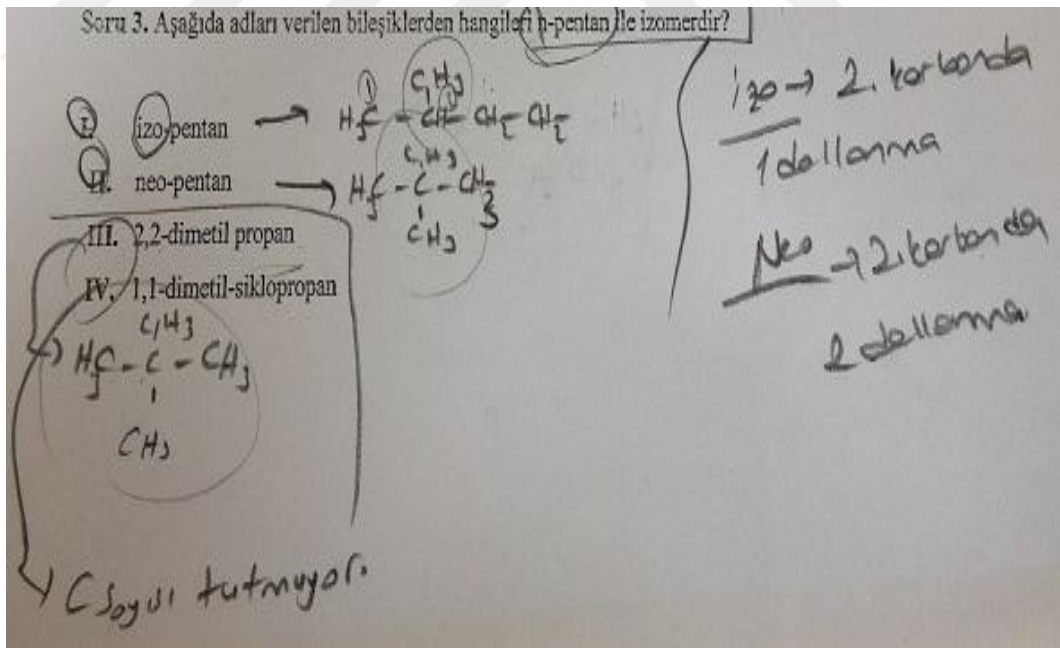 Soru 3. Aşağıda adları verilen bileşiklerden hangileri n-pentan ile izomerdir?
I. izo-pentan → H₃C - CH - CH₂ - CH₂-
CH₃
1
II. neo-pentan → H₃C - C - CH₃
CH₃
CH₃
III. 2,2-dimetil propan
IV. 1,1-dimetil-siklopropan
CH₃
H₃C - C - CH₃
CH₃
C sayısı tutmuyor.
izo → 2. karbonda
1 dallanma
Neo → 2. karbonda
2 dallanma